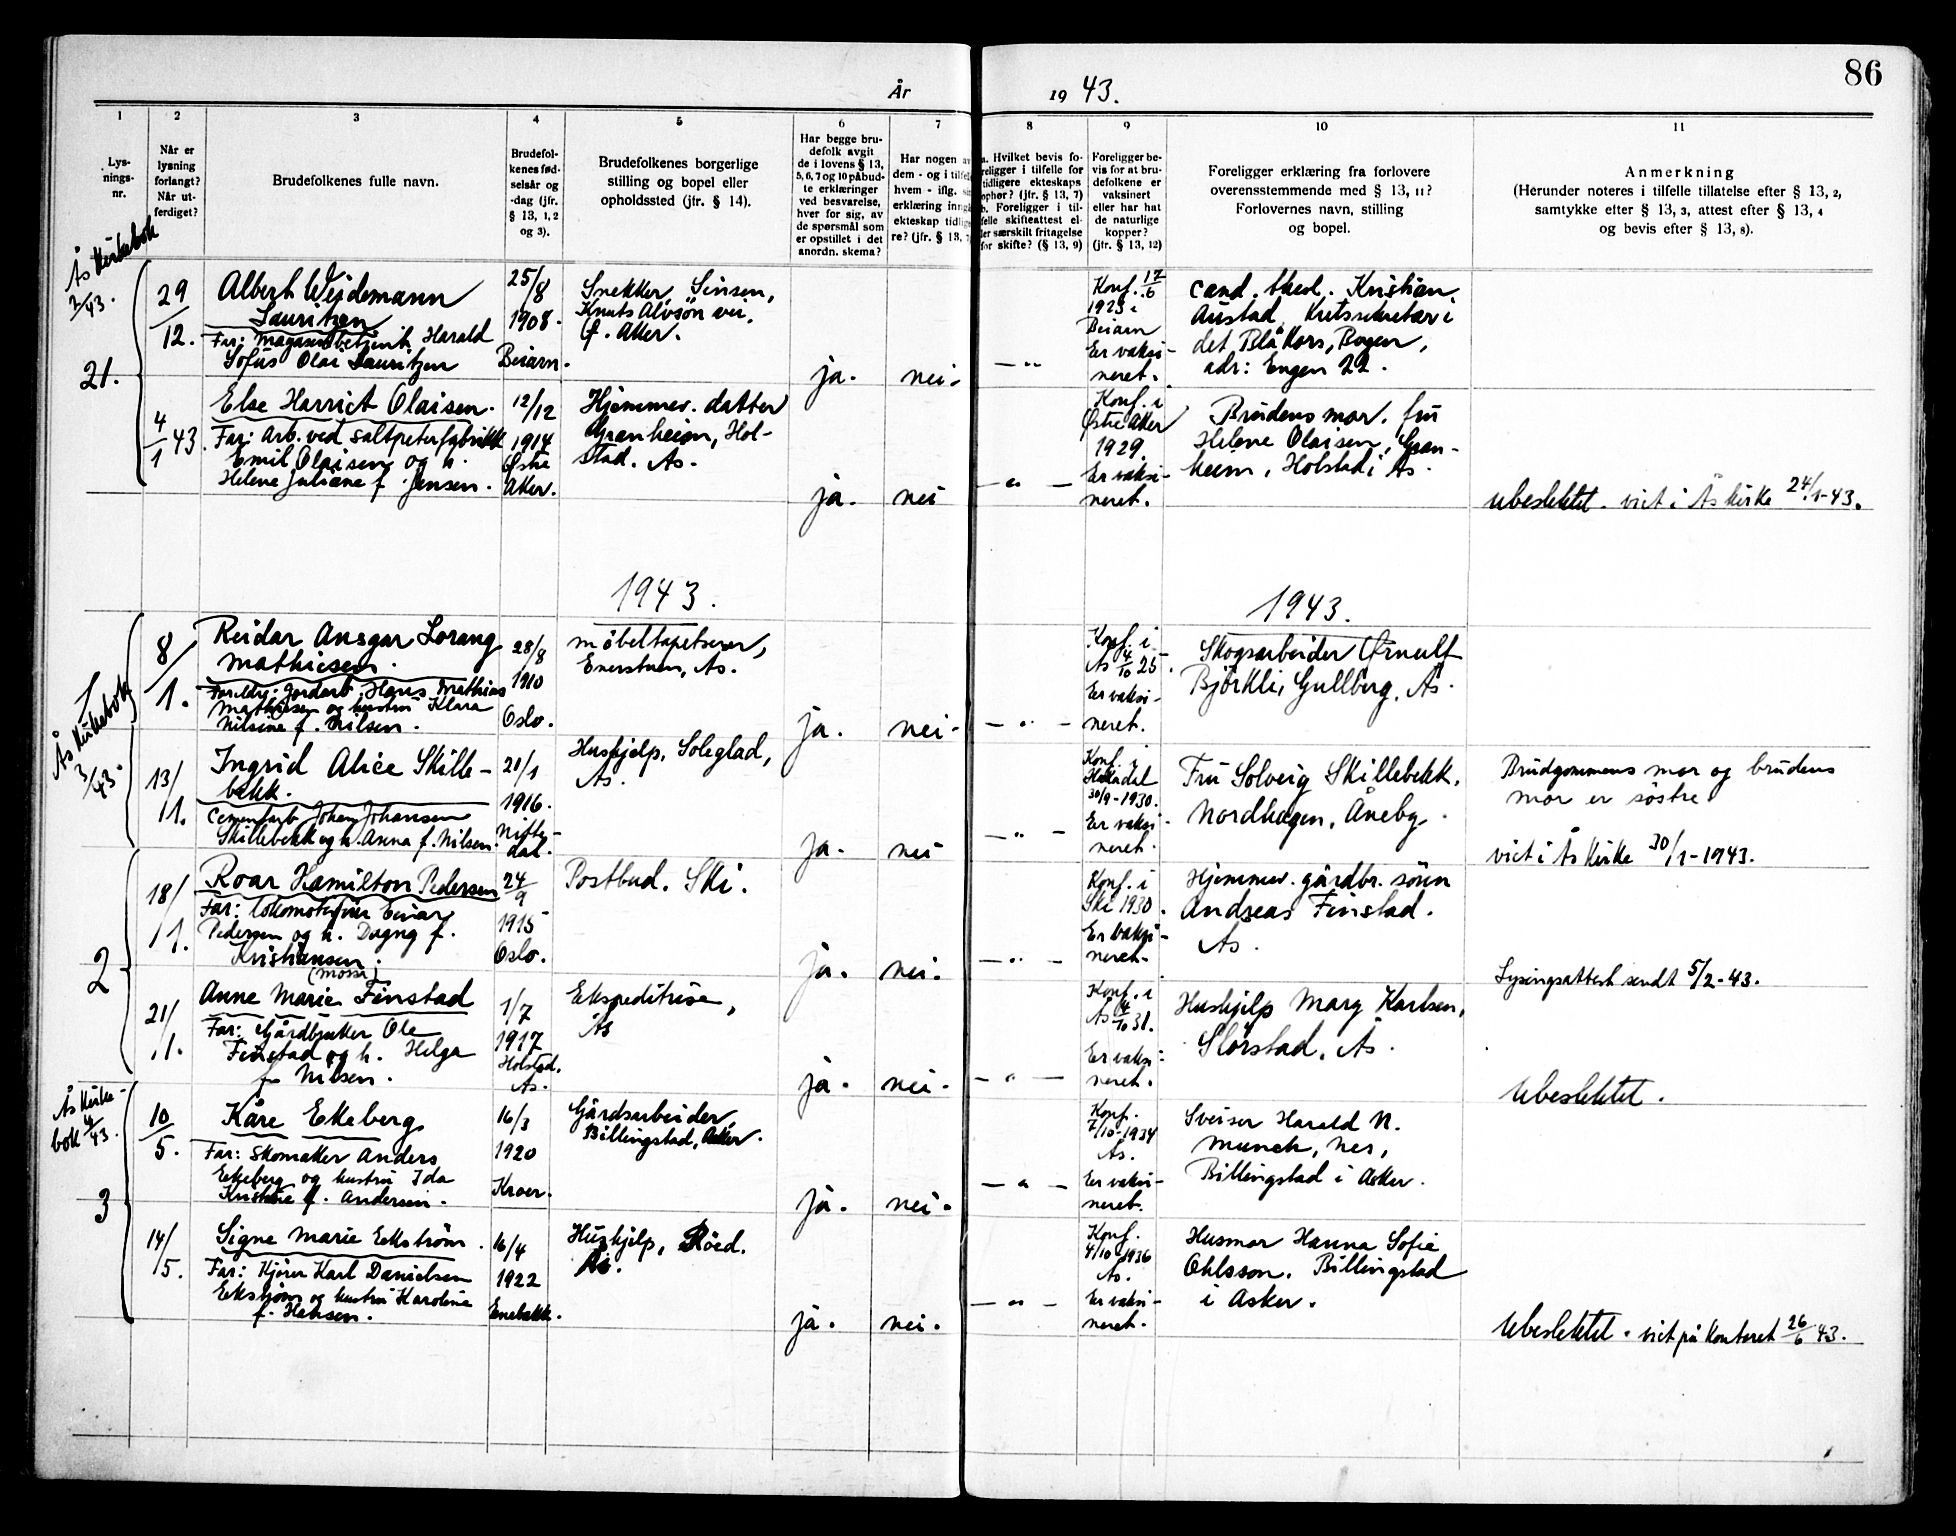 86
År
19 43.
1
2
3
4
5
6
7
8
9
10
11
Lys-
nings-
nr.
Når er
lysning
forlangt?
Når ut-
ferdiget?
Brudefolkenes fulle navn.
Brudefol-
kenes fød-
selsår og
-dag (jfr.
§ 13, 1, 2
og 3).
Brudefolkenes borgerlige
stilling og bopel eller
opholdssted (jfr. § 14).
Har begge bru-
defolk avgit
de i lovens § 13,
5, 6, 7 og 10 påbud-
te erklæringer
ved besvarelse,
hver for sig, av
de spørsmål som
er opstillet i det
anordn. skema?
Har nogen av
dem - og i tilfel
hvem - iflg. si
erklæring inng
ekteskap tidlig
re? (jfr. § 13,
a. Hvilket bevis fo-
religger i tilfelle for
tidligere ekteskaps
ophør? (jfr. § 13, 7)
b. Foreligger i til-
felle skifteattest el-
ler særskilt fritagelse
for skifte? (§ 13, 9)
Foreligger be-
vis for at bru-
defolkene er
vaksinert
eller har hat
de naturlige
kopper?
(jfr. § 13, 12)
Foreligger erklæring fra forlovere
overensstemmende med § 13, 11?
Forlovernes navn, stilling
og bopel.
Anmerkning
(Herunder noteres i tilfelle tillatelse efter § 13, 2,
samtykke efter § 13, 3, attest efter § 13, 4
og bevis efter § 13, 8).
Ås Kirkebok
2/43.
21.
29/12.
Albert Weidemann
Lauritzen
Far: Magasinbetjent Harald
Sofus Olai Lauritzen
25/8
1908.
Beiarn.
Snekker, Sinsen,
Knuts Alvsön vei,
Ø. Aker.
ja.
nei.
— " —
Konf. 17/6
1923 i
Beiarn
Er vaksi-
neret.
Cand. theol. Kristian
Austad, Kretssekretær i
det Blå Kors, Bogen,
adr: Engen 22.
4/1 43.
Else Harriet Olaisen.
Far: Arb. ved saltpeterfabrikk
Emil Olaisen og h.
Helene Juliane f. Jensen.
12/12
1914
Østre
Aker.
Hjemmev. datter
Granheim, Hol-
stad. Ås.
ja.
nei
— " —
Konf. i
Østre Aker
1929.
Er vaksi-
neret.
Brudens mor. fru
Helene Olaisen, Gran-
heim, Holstad i Ås.
Ubeslektet. viet i Ås Kirke 24/1-43.
1943.
1943.
Ås Kirkebok
3/43.
1
8/1.
Reidar Ansgar Lorang
Mathiesen.
Foreldre: Jordarb. Hans Mathias
Mathiesen og hustru Klara
Nilsine f. Nilsen.
28/8
1910
Oslo.
Möbeltapetserer,
Enerstuen, Ås.
ja.
nei.
— " —
Konf. i
Ås 4/10 25.
Er vaksi-
neret.
Skogsarbeider Ørnulf
Björkli, Gullberg, Ås.
13/1.
Ingrid Alice Skille-
bekk.
Cementarb Johan Johansen
Skillebekk og h. Anna f. Nilsen.
20/1
1916.
Nitte-
dal.
Hushjelp, Soleglad,
Ås.
ja.
nei
— " —
Konf. i
Hakadal
30/9-1930.
Er vaksi-
neret.
Fru Solveig Skillebekk.
Nordhagen, Åneby.
Brudgommens mor og brudens
mor er söstre
viet i Ås Kirke 30/1-1943.
2
18/1.
Roar Hamilton Pedersen
Far: lokomotivfører Einar
Pedersen og h. Dagny f.
Kristiansen.
24/9
1915
Oslo.
Postbud. Ski.
ja.
nei.
— " —
Konf. i
Ski 1930.
Er vaksi-
neret.
Hjemmev. gårdbr. sönn
Andreas Finstad.
Ås.
Lysingsattest sendt 5/2-43.
21/1.
(mossa)
Anne Marie Finstad
Far: Gårdbruker Ole
Finstad og h. Helga
f. Nilsen.
1/7
1917
Holstad.
Ås.
Ekspeditrise,
Ås
ja.
nei.
— " —
Konf. i
Ås 4/10 31.
Er vaksi-
neret.
Hushjelp Mary Karlsen,
Slörstad, Ås.
Ubeslektet.
Ås Kirke-
bok 4/43.
3
10/5.
Kåre Ekeberg
Far: Skomaker Anders
Eekeberg og hustru Ida
Kristine f. Andersen.
16/3
1920
Kroer.
Gårdsarbeider,
Billingstad, Asker.
ja.
nei.
— " —
Konf.
7/10-1934
Ås.
Er vaksi-
neret.
Sveiser Harald N.
Munch, Nes,
Billingstad i Asker.
14/5.
Signe Marie Eekström.
Far: Kjörer Karl Danielsen
Eekström og hustru Karoline
f. Hansen.
16/4
1922
Enebakk.
Hushjelp, Röed.
Ås.
ja.
nei.
— " —
Konf.
4/10 1936
Ås.
Er vaksi-
neret.
Husmor Hanna Sofie
Ohlsson. Billingstad
i Asker.
Ubeslektet. viet på Kontoret 26/6 43.